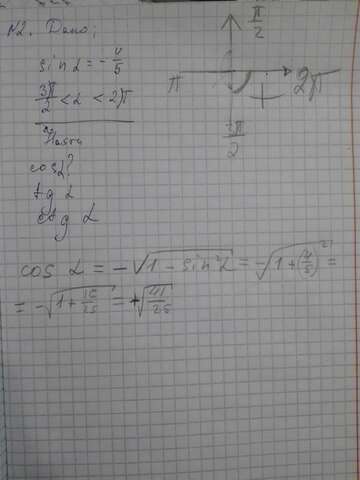 N2. Дано:
sin α = - 4/5
3π/2 < α < 2π
Найти
cos α?
tg α
ctg α
π/2
π
2π
3π/2
cos α = -√(1 - sin²α) = -√(1 + (4/5)²) =
= -√(1 + 16/25) = +√(41/25)